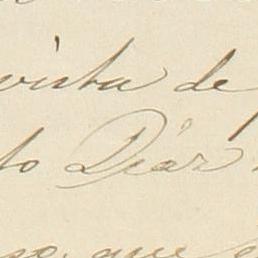 vista de
to Diaz
so, que